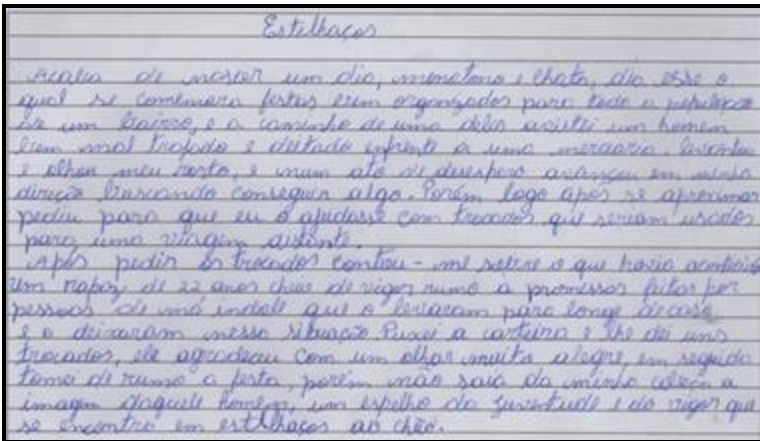 Estilhaços
Acaba de nascer um dia, monotono e chato, dia esse o
qual se comemora festas eram organizados para todo a população
de um bairro, e a caminho de uma delas avistei um homem
bem mal trajado e deitado enfrente a uma mercearia. levantou
e olhou meu rosto, e num ato de desespero avançou em minha
direção buscando conseguir algo. Porém logo após se aproximar
pediu para que eu o ajudasse com trocados que seriam usados
para uma viagem distante.
Após pedir os trocados contou-me sobre o que havia acontecido
um rapaz de 22 anos cheio de vigor rumo a promessas feitas por
pessoas de má indole que o levaram para longe de casa
e o deixaram nessa situação. Puxei a carteira e lhe dei uns
trocados, ele agradeceu com um olhar muito alegre, em seguida
tomei de rumo a festa, porém não saia da minha cabeça a
imagem daquele homem, um espelho da juventude e do vigor que
se encontra em estilhaços ao chão.